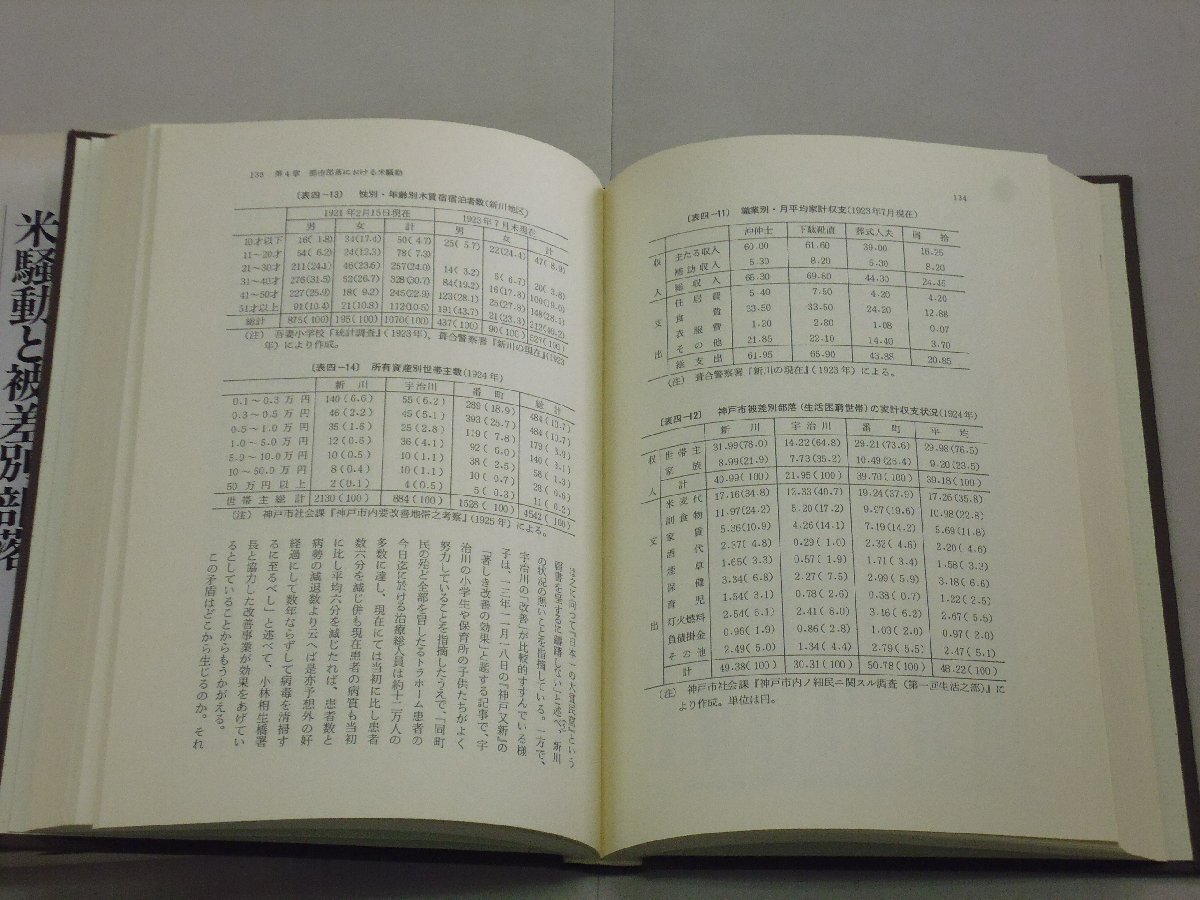 米騒動と被差別部落
134
〔表四-11〕 職業別・月平均家計収支(1923年7月現在)
沖仲士 下駄靴直 葬式人夫 屑拾
収入 主たる収入 60.00 61.60 39.00 16.25
補助収入 5.30 8.20 5.30 8.20
総収入 65.30 69.80 44.30 24.45
支出 住居費 5.40 7.50 4.20 4.20
食費 33.50 33.50 24.20 12.88
衣服費 1.20 2.80 1.08 0.07
その他 21.85 22.10 14.40 3.70
総支出 61.95 65.90 43.88 20.85
(注) 葺合警察署『新川の現在』(1923年)による。
〔表四-12〕 神戸市被差別部落(生活困窮世帯)の家計収支状況(1924年)
新川 宇治川 番町 平均
収入 世帯主 31.99(78.0) 14.22(64.8) 29.21(73.6) 29.98(76.5)
家族 8.99(21.9) 7.73(35.2) 10.49(26.4) 9.20(23.5)
計 40.99(100) 21.95(100) 39.70(100) 39.18(100)
支出 米麦代 17.16(34.8) 12.33(40.7) 19.24(37.9) 17.26(35.8)
副食物 11.97(24.2) 5.20(17.2) 9.97(19.6) 10.98(22.8)
家賃 5.36(10.9) 4.26(14.1) 7.19(14.2) 5.69(11.8)
酒代 2.37(4.8) 0.29(1.0) 2.32(4.6) 2.20(4.6)
煙草 1.65(3.3) 0.57(1.9) 1.71(3.4) 1.58(3.3)
保健 3.34(6.8) 2.27(7.5) 2.99(5.9) 3.18(6.6)
育児 1.54(3.1) 0.78(2.6) 0.38(0.7) 1.22(2.5)
灯火燃料 2.54(5.1) 2.41(8.0) 3.16(6.2) 2.67(5.5)
負債掛金 0.96(1.9) 0.86(2.8) 1.03(2.0) 0.97(2.0)
その他 2.49(5.0) 1.34(4.4) 2.79(5.5) 2.47(5.1)
計 49.38(100) 30.31(100) 50.78(100) 48.22(100)
(注) 神戸市社会課『神戸市内ノ細民ニ関スル調査(第一回生活之部)』に
より作成。単位は円。
第4章 都市部落における米騒動
〔表四-13〕 性別・年齢別木賃宿宿泊者数(新川地区)
1921年2月15日現在 1923年7月末現在
男 女 計 男 女 計
10才以下 16(1.8) 34(17.4) 50(4.7) 25(5.7) 22(24.4) 47(8.9)
11〜20才 54(6.2) 24(12.3) 78(7.3) 14(3.2) 5(6.7) 20(3.8)
21〜30才 211(24.1) 46(23.6) 257(24.0) 84(19.2) 16(17.8) 100(19.0)
31〜40才 276(31.5) 52(26.7) 328(30.7) 123(28.1) 25(27.8) 148(28.1)
41〜50才 227(25.9) 18(9.2) 245(22.9) 191(43.7) 21(23.3) 212(40.2)
51才以上 91(10.4) 21(10.8) 112(10.5)
総計 875(100) 195(100) 1070(100) 437(100) 90(100) 527(100)
(注) 吾妻小学校『統計調査』(1923年)、葺合警察署『新川の現在』(1923
年)により作成。
〔表四-14〕 所有資産別世帯主数(1924年)
新川 宇治川 番町 総計
0.1〜0.3万円 140(6.6) 55(6.2) 289(18.9) 484(10.7)
0.3〜0.5万円 46(2.2) 45(5.1) 393(25.7) 484(10.7)
0.5〜1.0万円 35(1.6) 25(2.8) 119(7.8) 179(3.9)
1.0〜5.0万円 12(0.5) 36(4.1) 92(6.0) 140(3.1)
5.0〜10.0万円 10(0.5) 10(1.1) 38(2.5) 58(1.3)
10〜50.0万円 8(0.4) 10(1.1) 10(0.7) 28(0.6)
50万円以上 2(0.1) 4(0.5) 5(0.3) 11(0.2)
世帯主総計 2130(100) 884(100) 1528(100) 4542(100)
(注) 神戸市社会課『神戸市内要改善地帯之考察』(1925年)による。
『日本一の大貧民窟』という
肩書を保するに躊躇しない」と述べ、新川
の状況の悪いことを指摘している。一方で、
宇治川の「改善」が比較的すすんでいる様
子は、一三年一一月八日の『神戸又新』の
「著しき改善の効果」と題する記事で、宇
治川の小学生や保育所の子供たちがよく
努力していることを指摘したうえで、「同町
民の殆ど全部を冒したるトラホーム患者の
今日迄に於ける治療総人員は約十二万人の
多数に達し、現在にては当初に比し患者
数六分を減じ併も現在患者の病質も当初
に比し平均六分を減じたれば、患者数と
病勢の減退数より云へば是亦予想外の好
経過にして数年ならずして病毒を清掃す
るに至るべし」と述べて、小林相生橋署
長と協力した改善事業が効果をあげてい
るとしていることからもうかがえる。
この矛盾はどこから生じるのか。それ